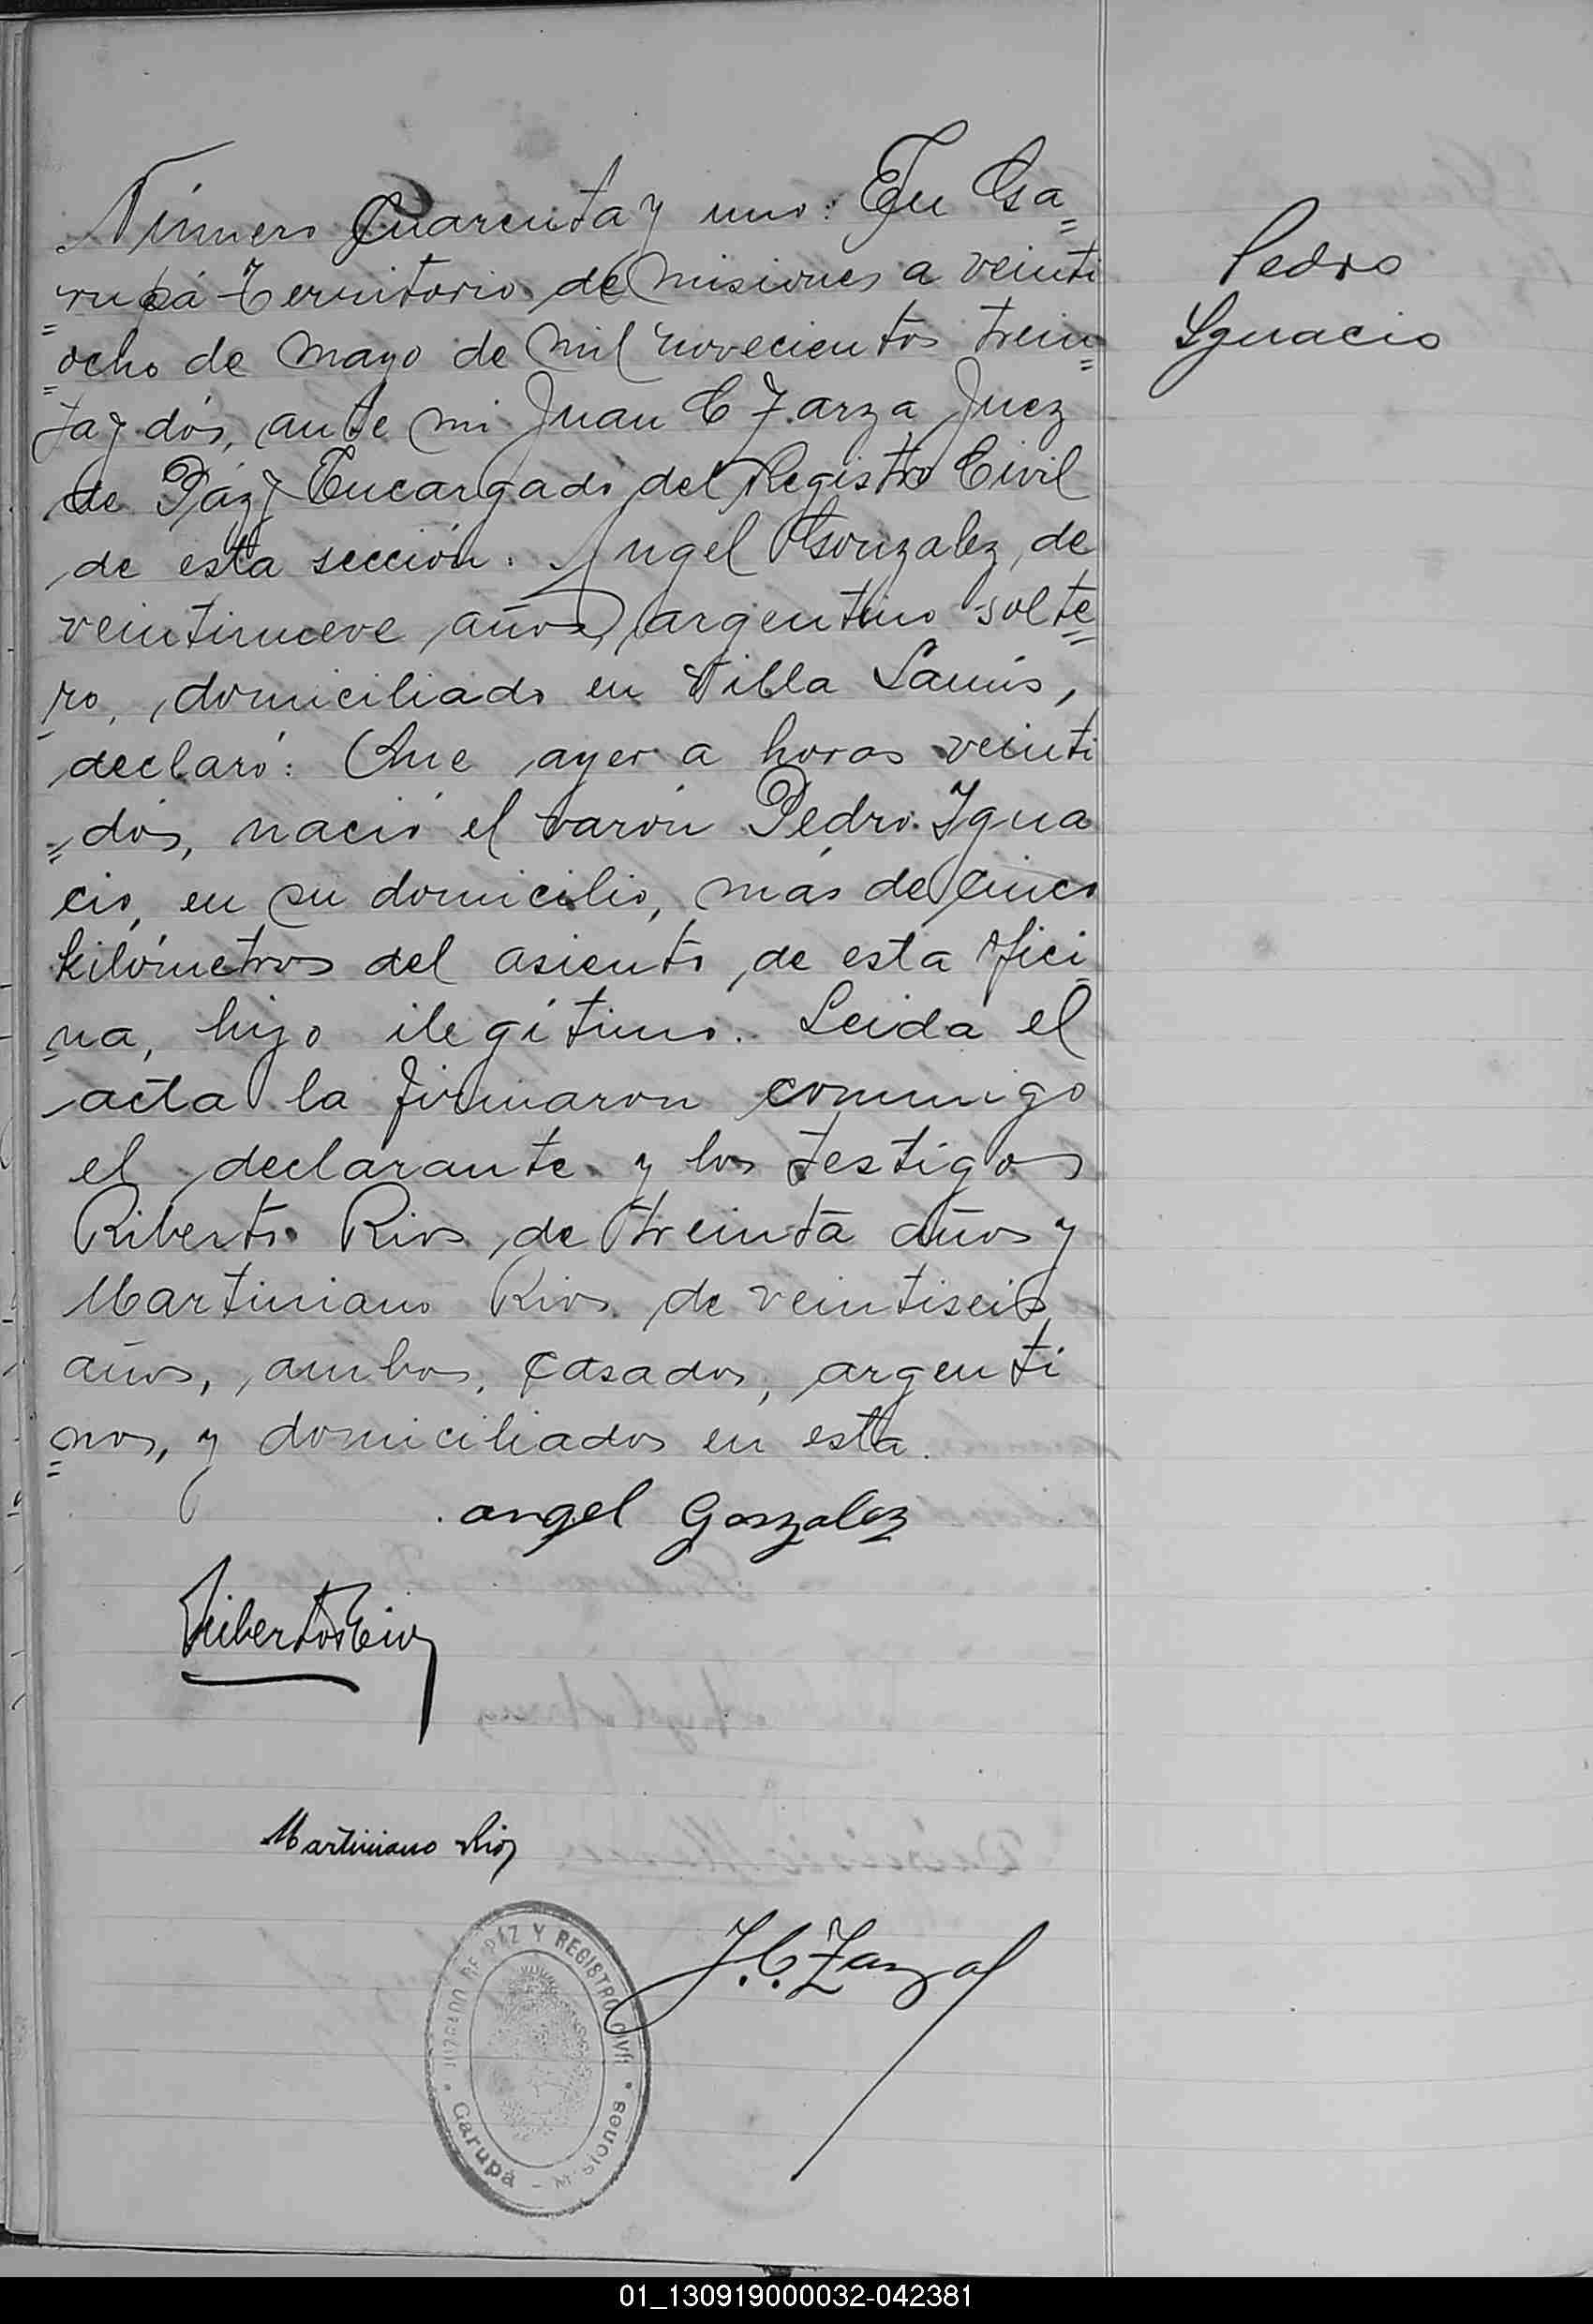 Número Cuarenta y uno: En Ga=
=rupá Territorio de Misiones a veinti
=ocho de Mayo de mil novecientos trein=
ta y dós, ante mi Juan C Zarza Juez
de Páz y Encargado del Registro Civil
de esta sección. Angel Gonzalez, de
veintinueve años, argentino solte=
ro, domiciliado en Villa Lanús,
declaró: Que ayer a horas veinti
=dós, nació el varón Pedro Igna
cio, en su domicilio, más de cinco
kilómetros del asiento de esta ofici=
na, hijo ilegítimo. Leida el
acta la firmaron conmigo
el declarante y los testigos
Riberto Rios de treinta años y
Martiniano Rios de veintiseis
años, ambos, casados, argenti
=nos, y domiciliados en esta.
Pedro
Ignacio
angel Gonzalez
Riberto Rios
Martiniano Rios
J. C. Zarza
JUZGADO DE PAZ Y REGISTRO CIVIL
Garupá - Misiones
01_130919000032-042381